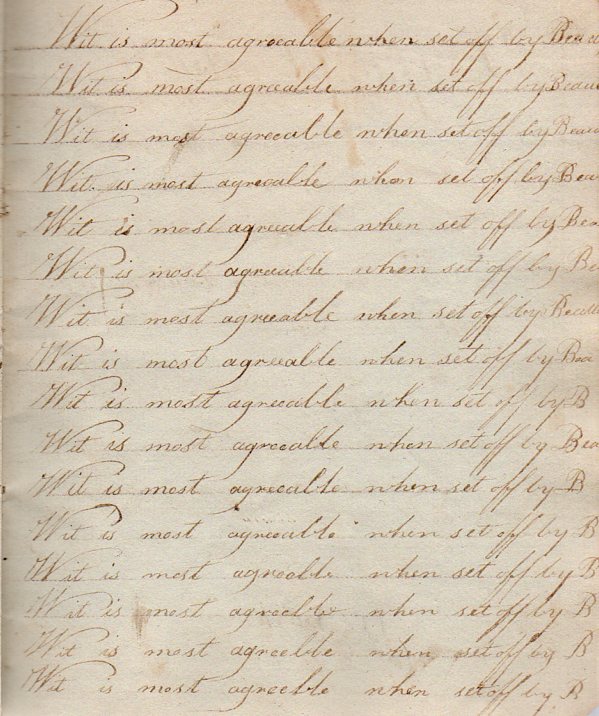 Wit is most agreeable when set off by Beau
Wit is most agreeable when set off by Beau
Wit is most agreeable when set off by Beau
Wit is most agreeable when set off by Bea
Wit is most agreeable when set off by Bea
Wit is most agreeable when set off by Be
Wit is most agreeable when set off by Beau
Wit is most agreeable when set off by Bea
Wit is most agreeable when set off by B
Wit is most agreeable when set off by Bea
Wit is most agreeable when set off by B
Wit is most agreeable when set off by B
Wit is most agreeable when set off by B
Wit is most agreeble when set off by B
Wit is most agreeble when set off by B
Wit is most agreeble when set off by B